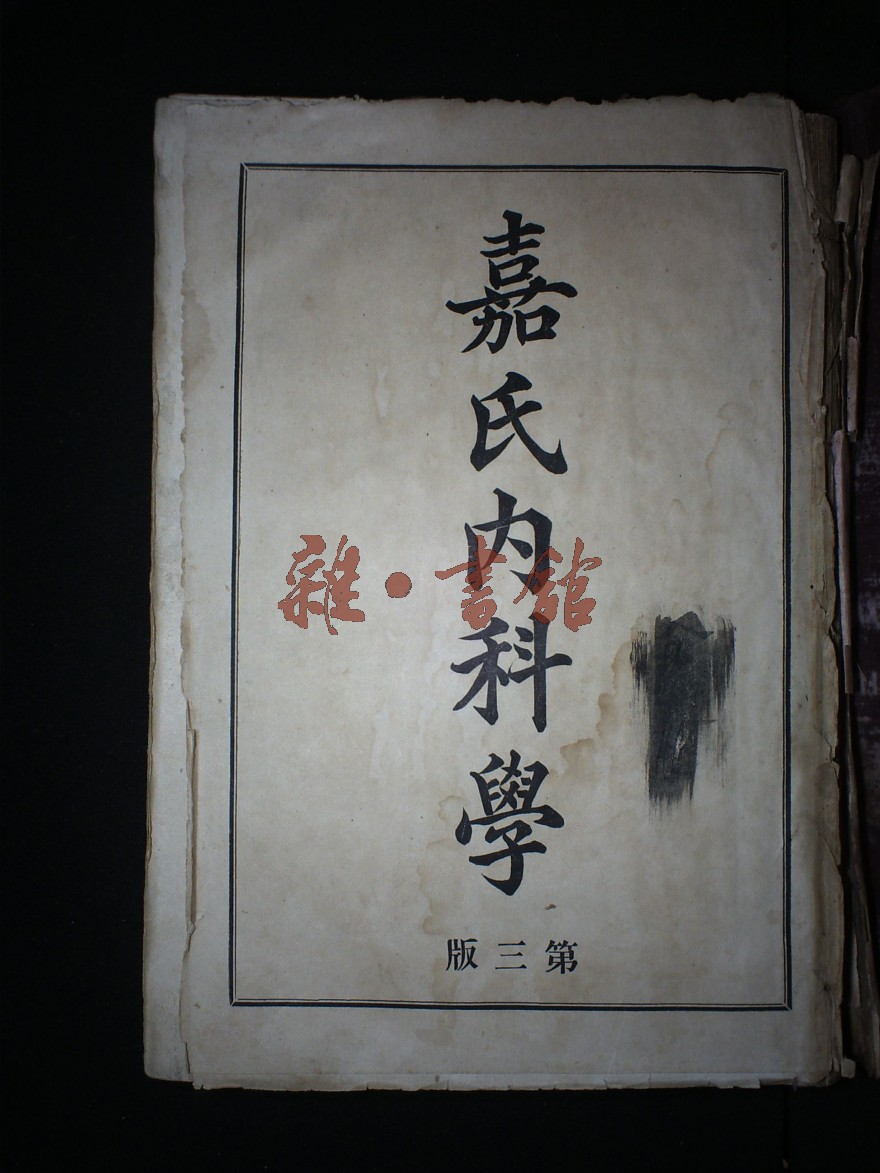 嘉氏内科學
第三版
雜·書館